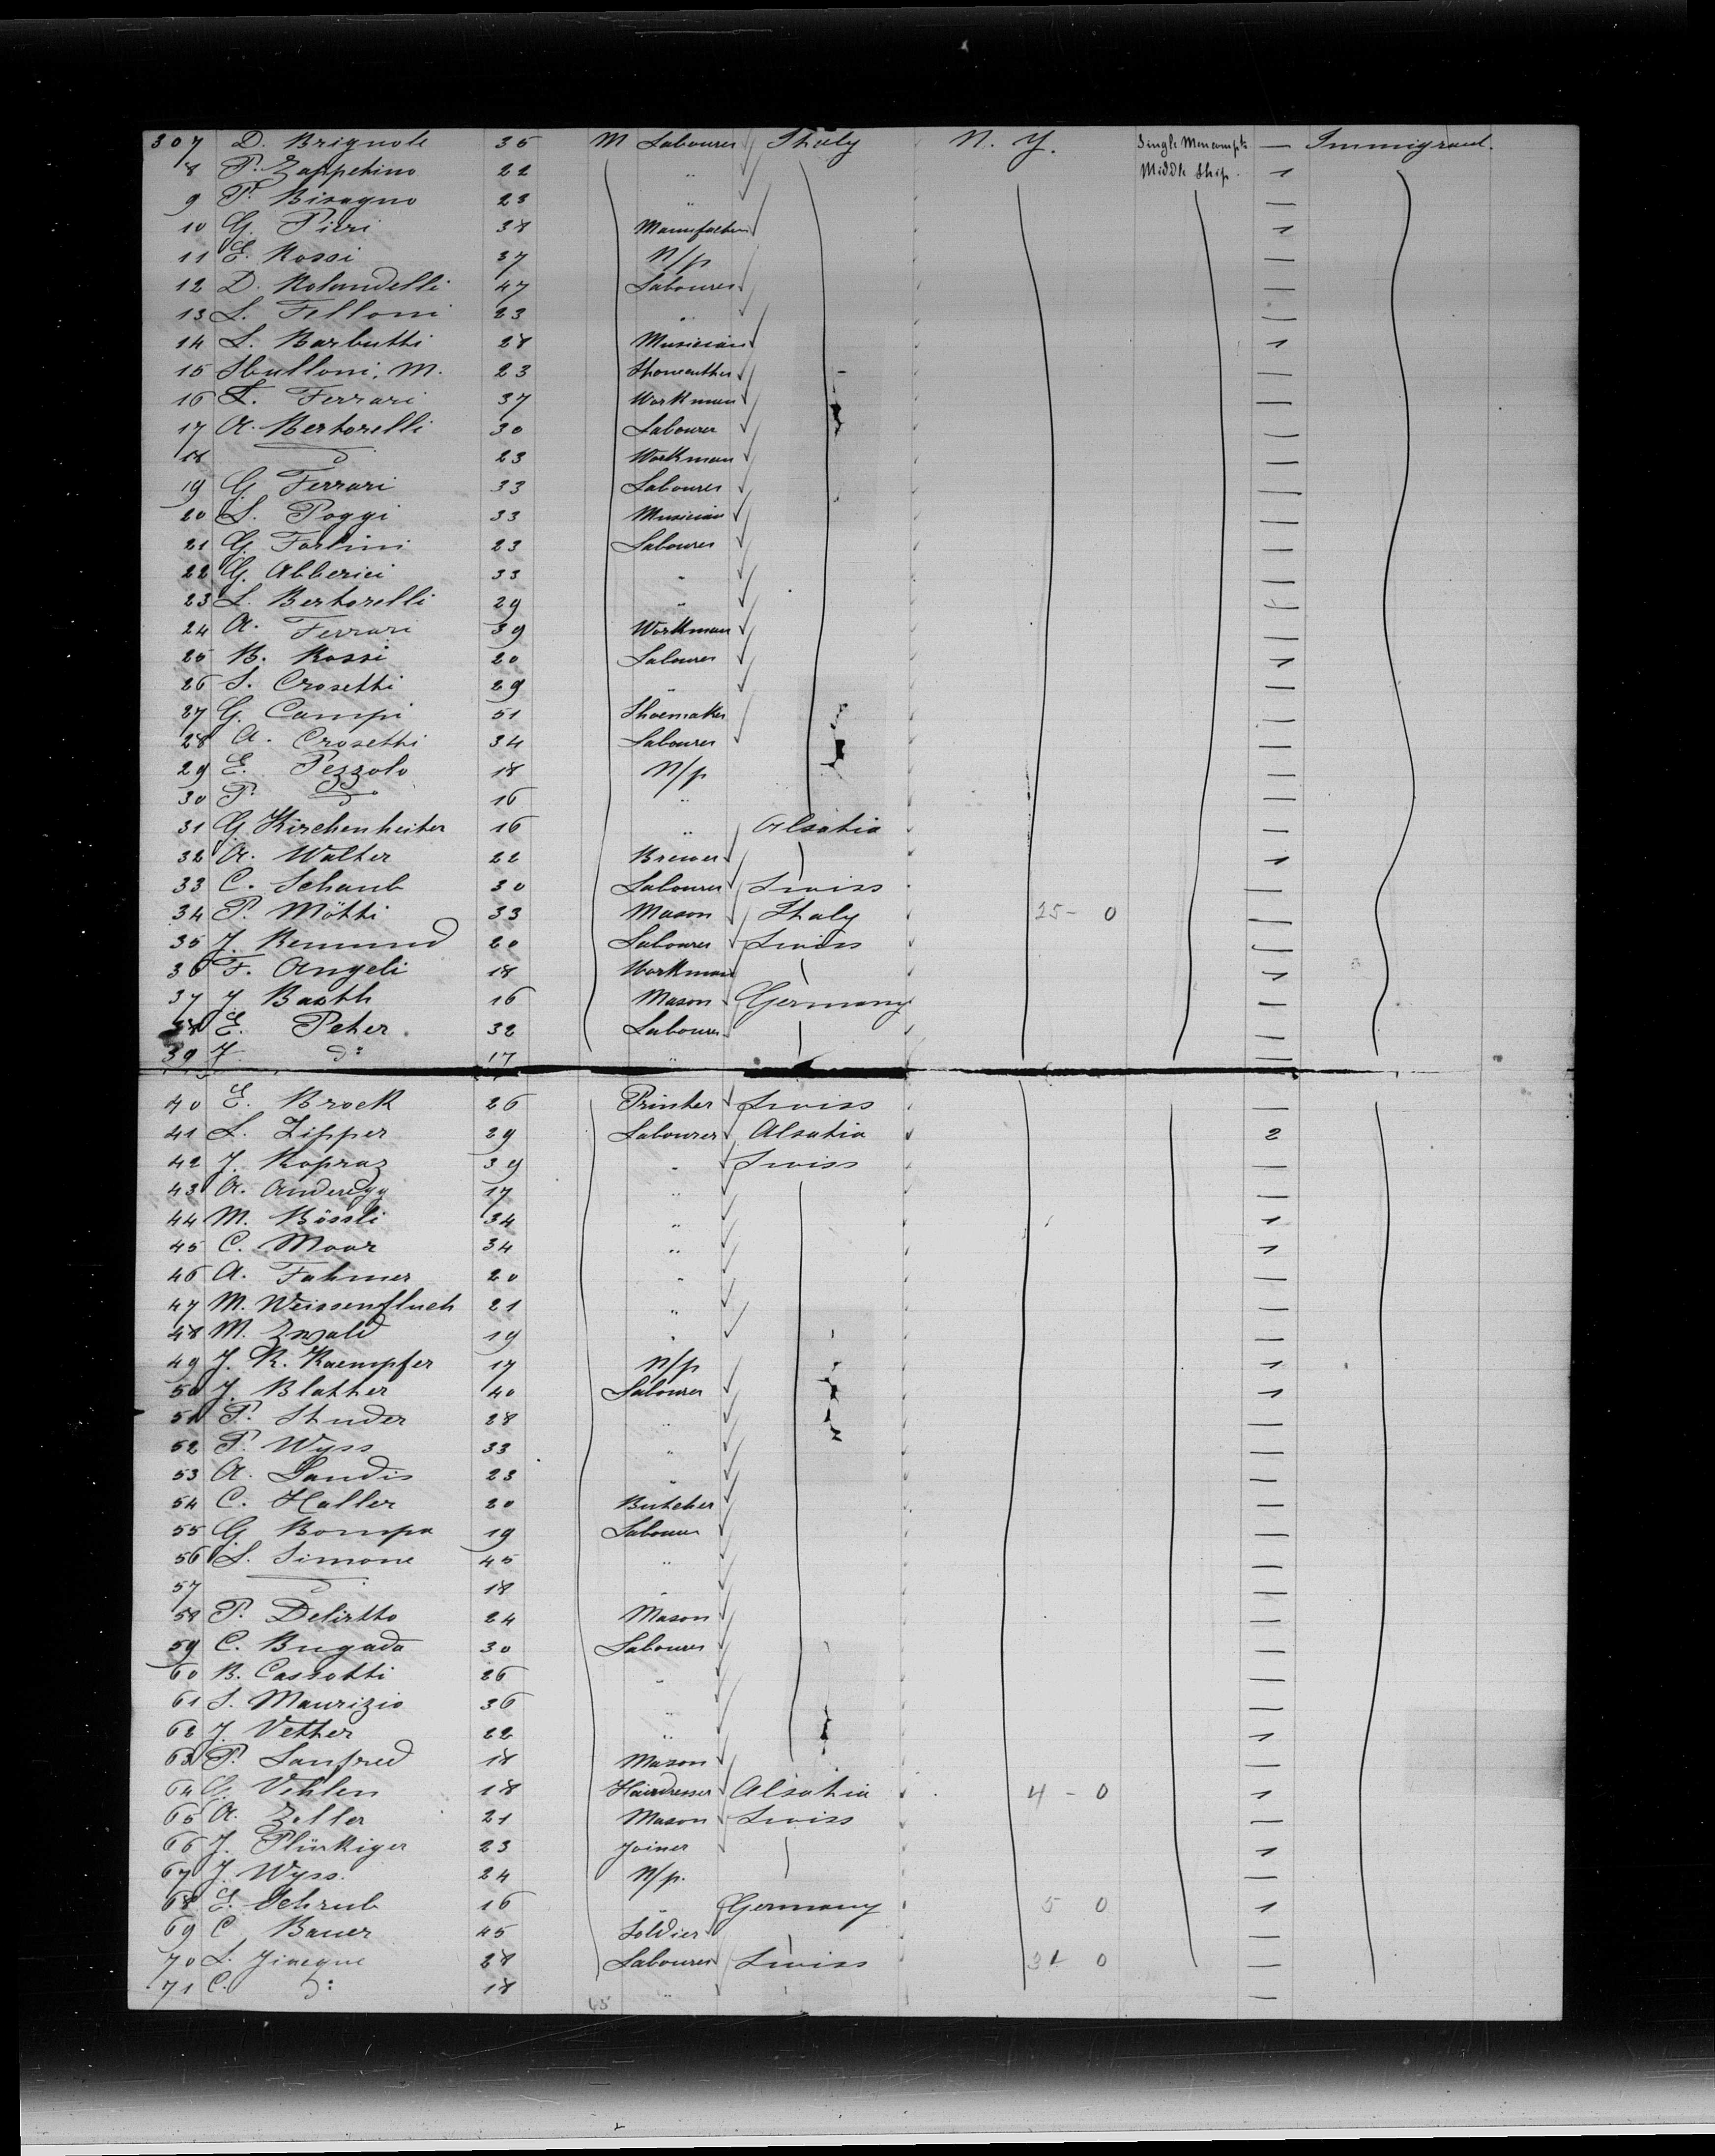 307 D. Brignole 35 M Labourer Ithaly N. Y. Single Men compt. — Immigrant.
8 P. Zappetino 22 " Middle Ship. 1
9 P. Bisagno 23 " —
10 G. Pieri 38 1
11 E. Rossi 37 N/p —
12 D. Rolandelli 47 Labourer —
13 L. Felloni 23 " —
14 L. Barbutti 28 Musician 1
15 M. 23 —
16 Ferrari 37 Workman —
17 A. Bertorelli 30 Labourer —
18 d 23 Workman —
19 G. Ferrari 33 Labourer —
20 L. Poggi 33 Musician —
21 G. Fortini 23 Labourer —
22 G. Abberici 33 " —
23 L. Bertorelli 29 " —
24 A. Ferrari 39 Workman —
25 B. Rossi 20 Labourer 1
26 S. Crosetti 29 " —
27 G. Campi 51 Shoemaker —
28 A. Crosetti 34 Labourer —
29 E. Pezzolo 18 N/p —
30 P. do 16 " —
31 G. Kirchenheiter 16 " Alsatia —
32 A. Walter 22 Brewer 1
33 C. Schaub 30 Labourer Swiss —
34 P. Mötti 33 Mason Ithaly 25 - 0 —
35 J. Remund 20 Labourer Swiss —
36 F. Angeli 18 Workman 1
37 J. Basth 16 Mason Germany —
38 E. Peter 32 Labourer —
39 J. do 17 " —
40 E. Brock 26 Printer Swiss —
41 L. Zipper 29 Labourer Alsatia 2
42 J. Kopraz 39 " Swiss —
43 A. Anderegg 17 " —
44 M. Bössli 34 " 1
45 C. Moor 34 " 1
46 A. Fahmer 20 " —
47 M. Weissenfluch 21 " —
48 M. Zwald 19 " —
49 J. R. Kaempfer 17 N/p 1
50 J. Blatther 40 Labourer 1
51 P. Studer 28 " —
52 P. Wyss 33 " —
53 A. Landis 23 " —
54 C. Haller 20 Butcher —
55 G. Bompa 19 Labourer —
56 S. Simone 45 " —
57 d 18 " —
58 P. Delirtto 24 Mason —
59 C. Bugada 30 Labourer —
60 B. Cassotti 26 " —
61 S. Maurizio 36 " —
62 J. Vether 22 " 1
63 P. Lanfred 18 Mason —
64 Vehlen 18 Hairdresser Alsatia 4 - 0 1
65 A. Zeller 21 Mason Swiss —
66 J. Plürkiger 23 Joiner 1
67 J. Wyss. 24 N/p. —
68 E. Schrub 16 " Germany 5 0 1
69 C. Bauer 45 Soldier —
70 L. Jineque 28 Labourer Swiss 31 0 —
71 C. do 18 " —